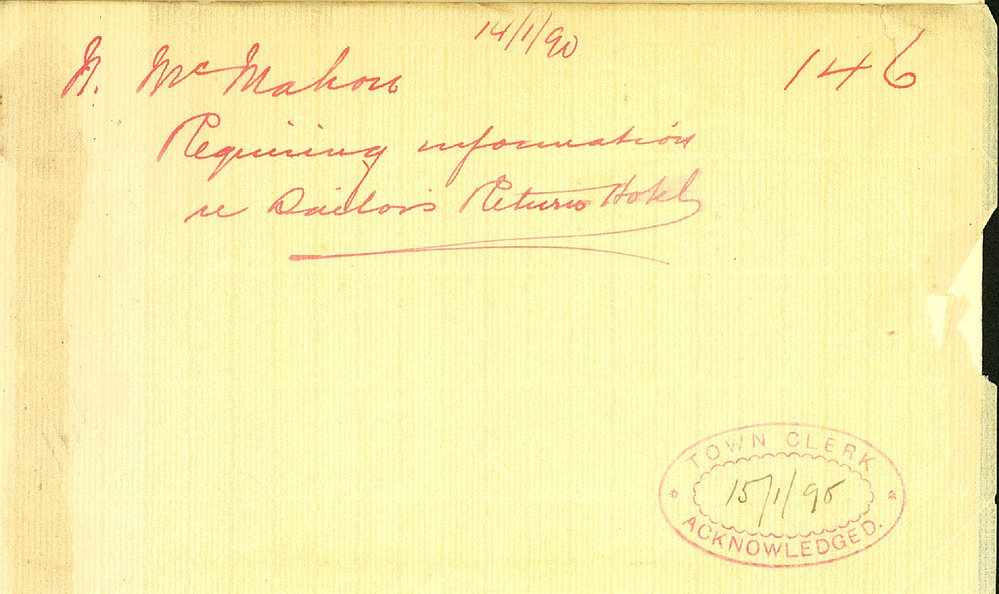 14/1/90
N. McMahon 146
Requiring information
re Sailors Return Hotel
TOWN CLERK
15/1/90
ACKNOWLEDGED.